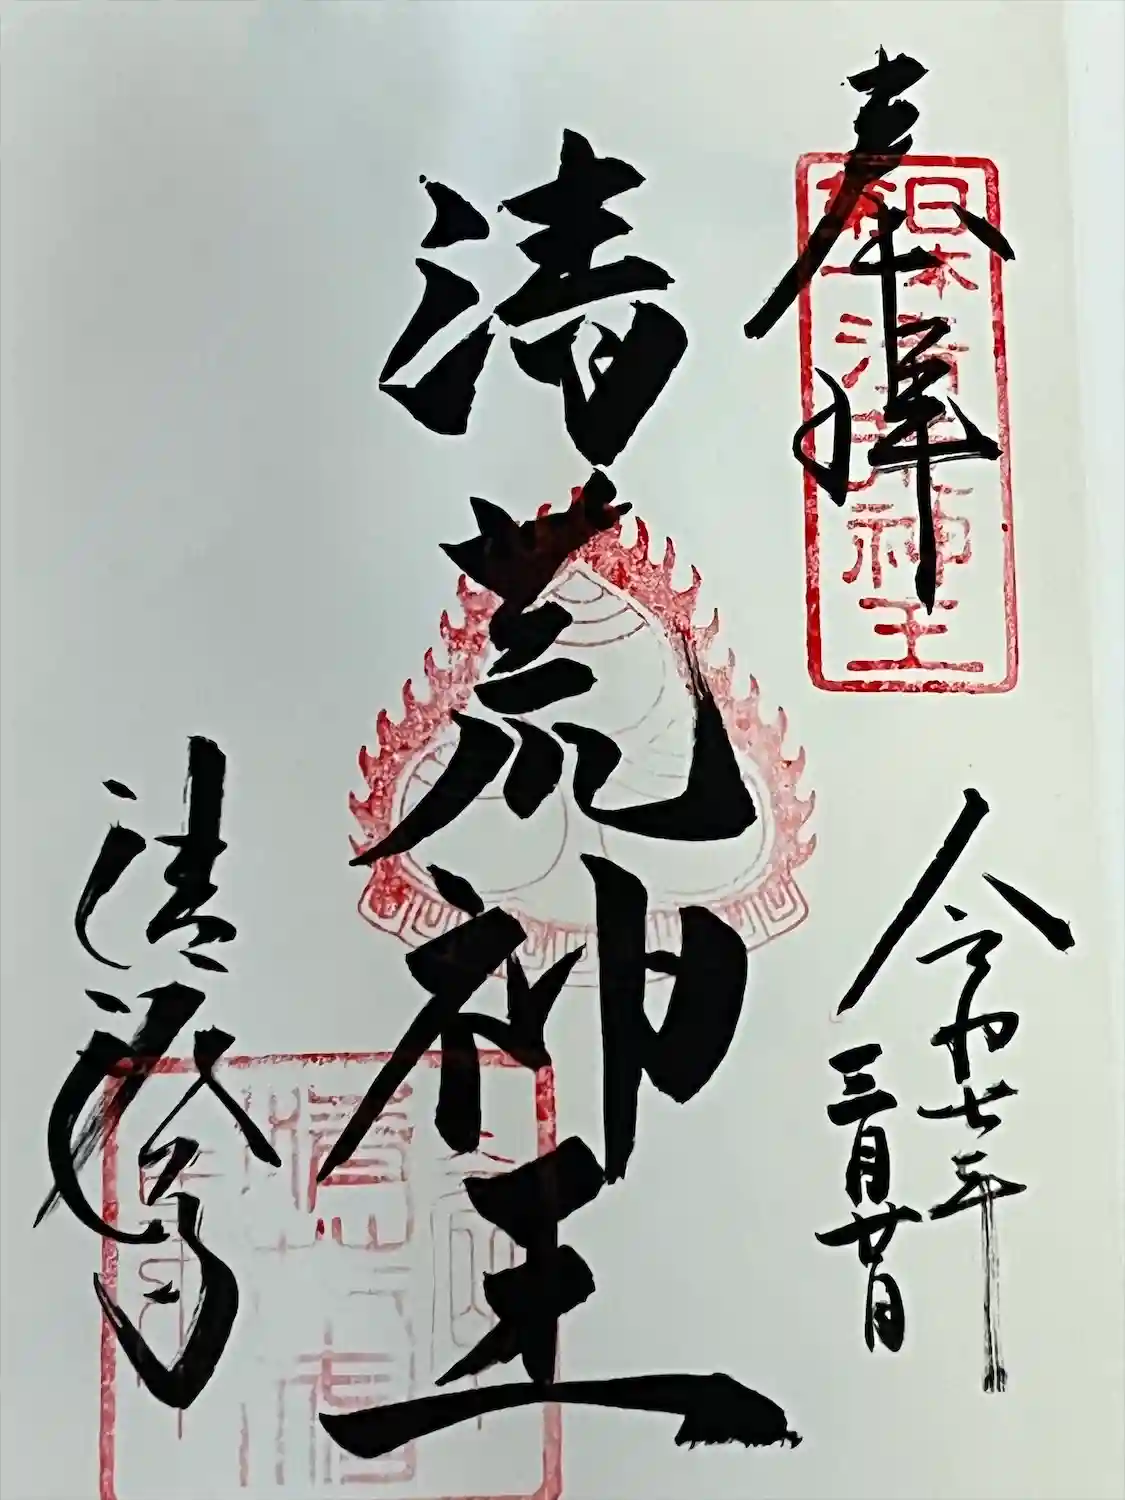 奉拝
日本
第一
清荒神王
令和七年
三月廿日
清荒神王
清澄寺